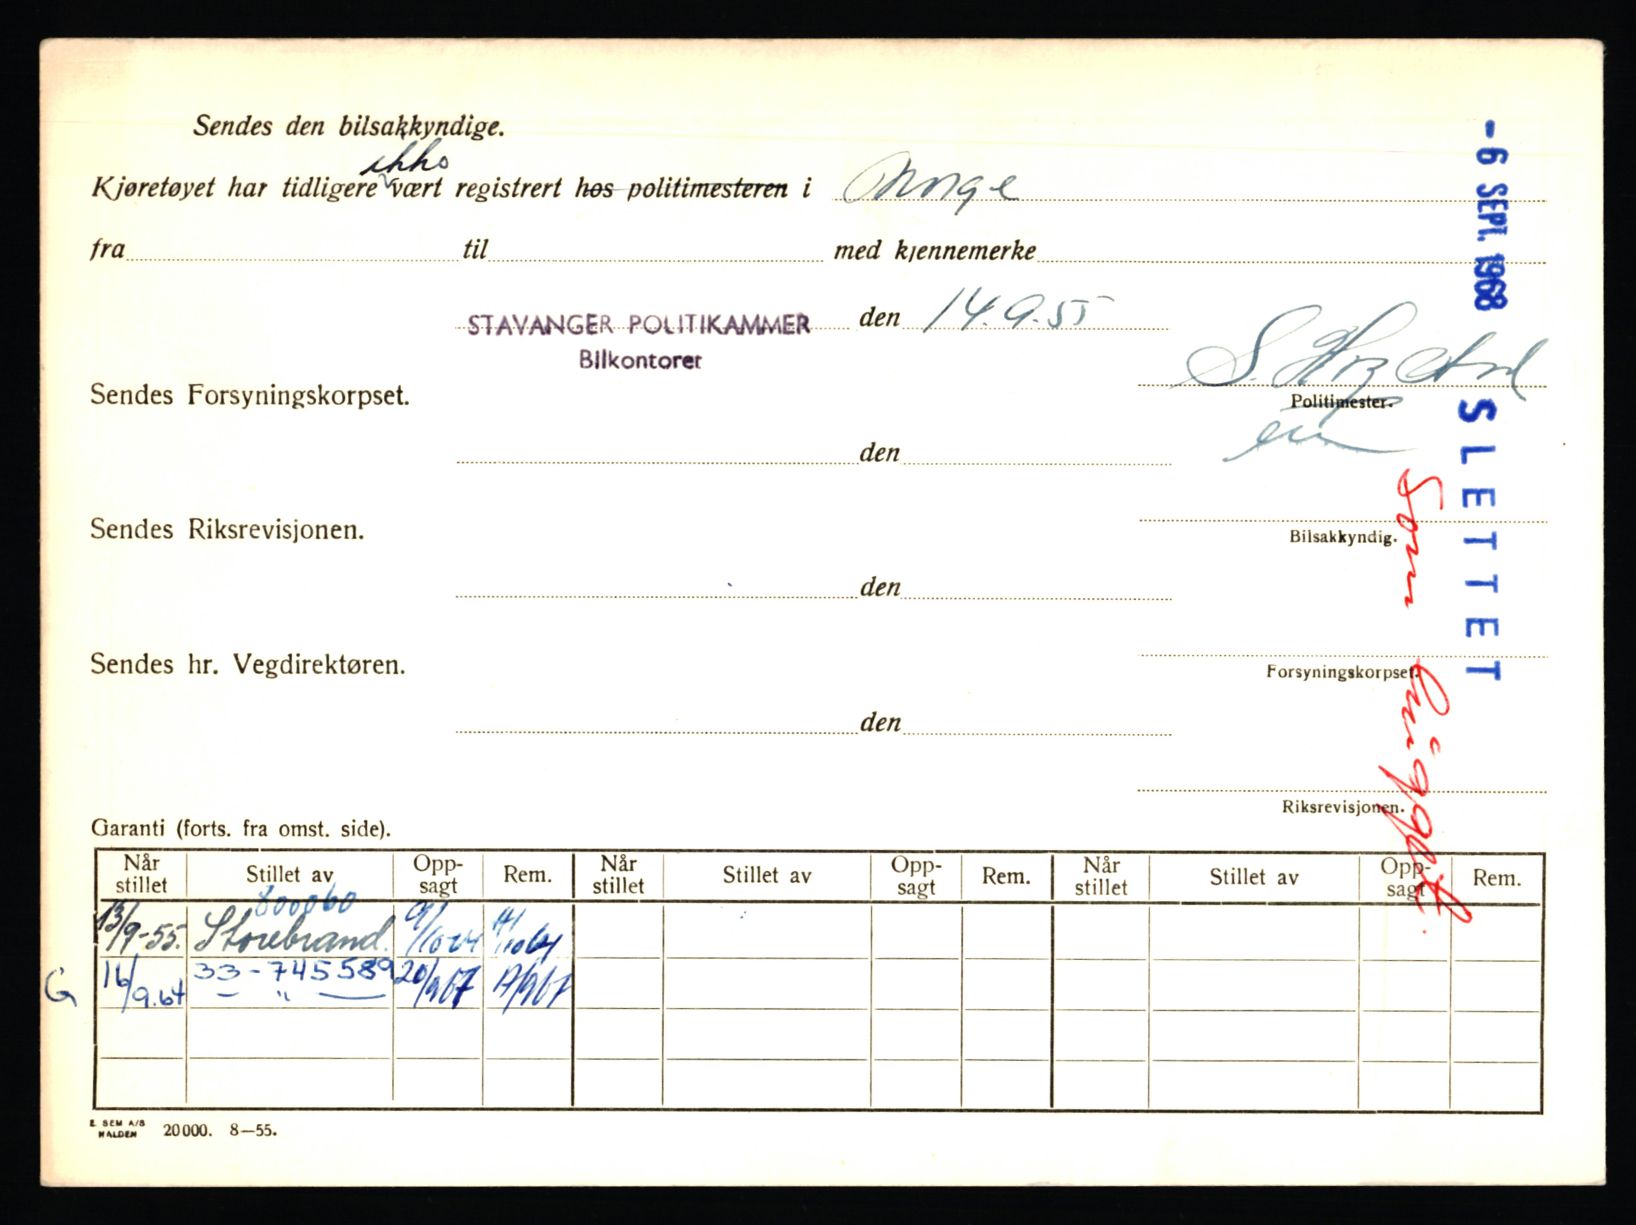 Sendes den bilsakkyndige.
ikke
Kjøretøyet har tidligere vært registrert hos politimesteren i Norge
fra til med kjennemerke
STAVANGER POLITIKAMMER den 14.9.55
Bilkontoret
Sendes Forsyningskorpset.
Politimester.
den
Sendes Riksrevisjonen.
Bilsakkyndig.
den
Sendes hr. Vegdirektøren.
Forsyningskorpset.
den
Riksrevisjonen.
- 6 SEPT. 1968
SLETTET
Som
Garanti (forts. fra omst. side).
Når stillet Stillet av Opp-sagt Rem. Når stillet Stillet av Opp-sagt Rem. Når stillet Stillet av Opp-sagt Rem.
800060
13/9-55. Storebrand.
G 16/9.64 33-745589 20/967
— " —
E. SEM A/S
HALDEN 20000. 8—55.